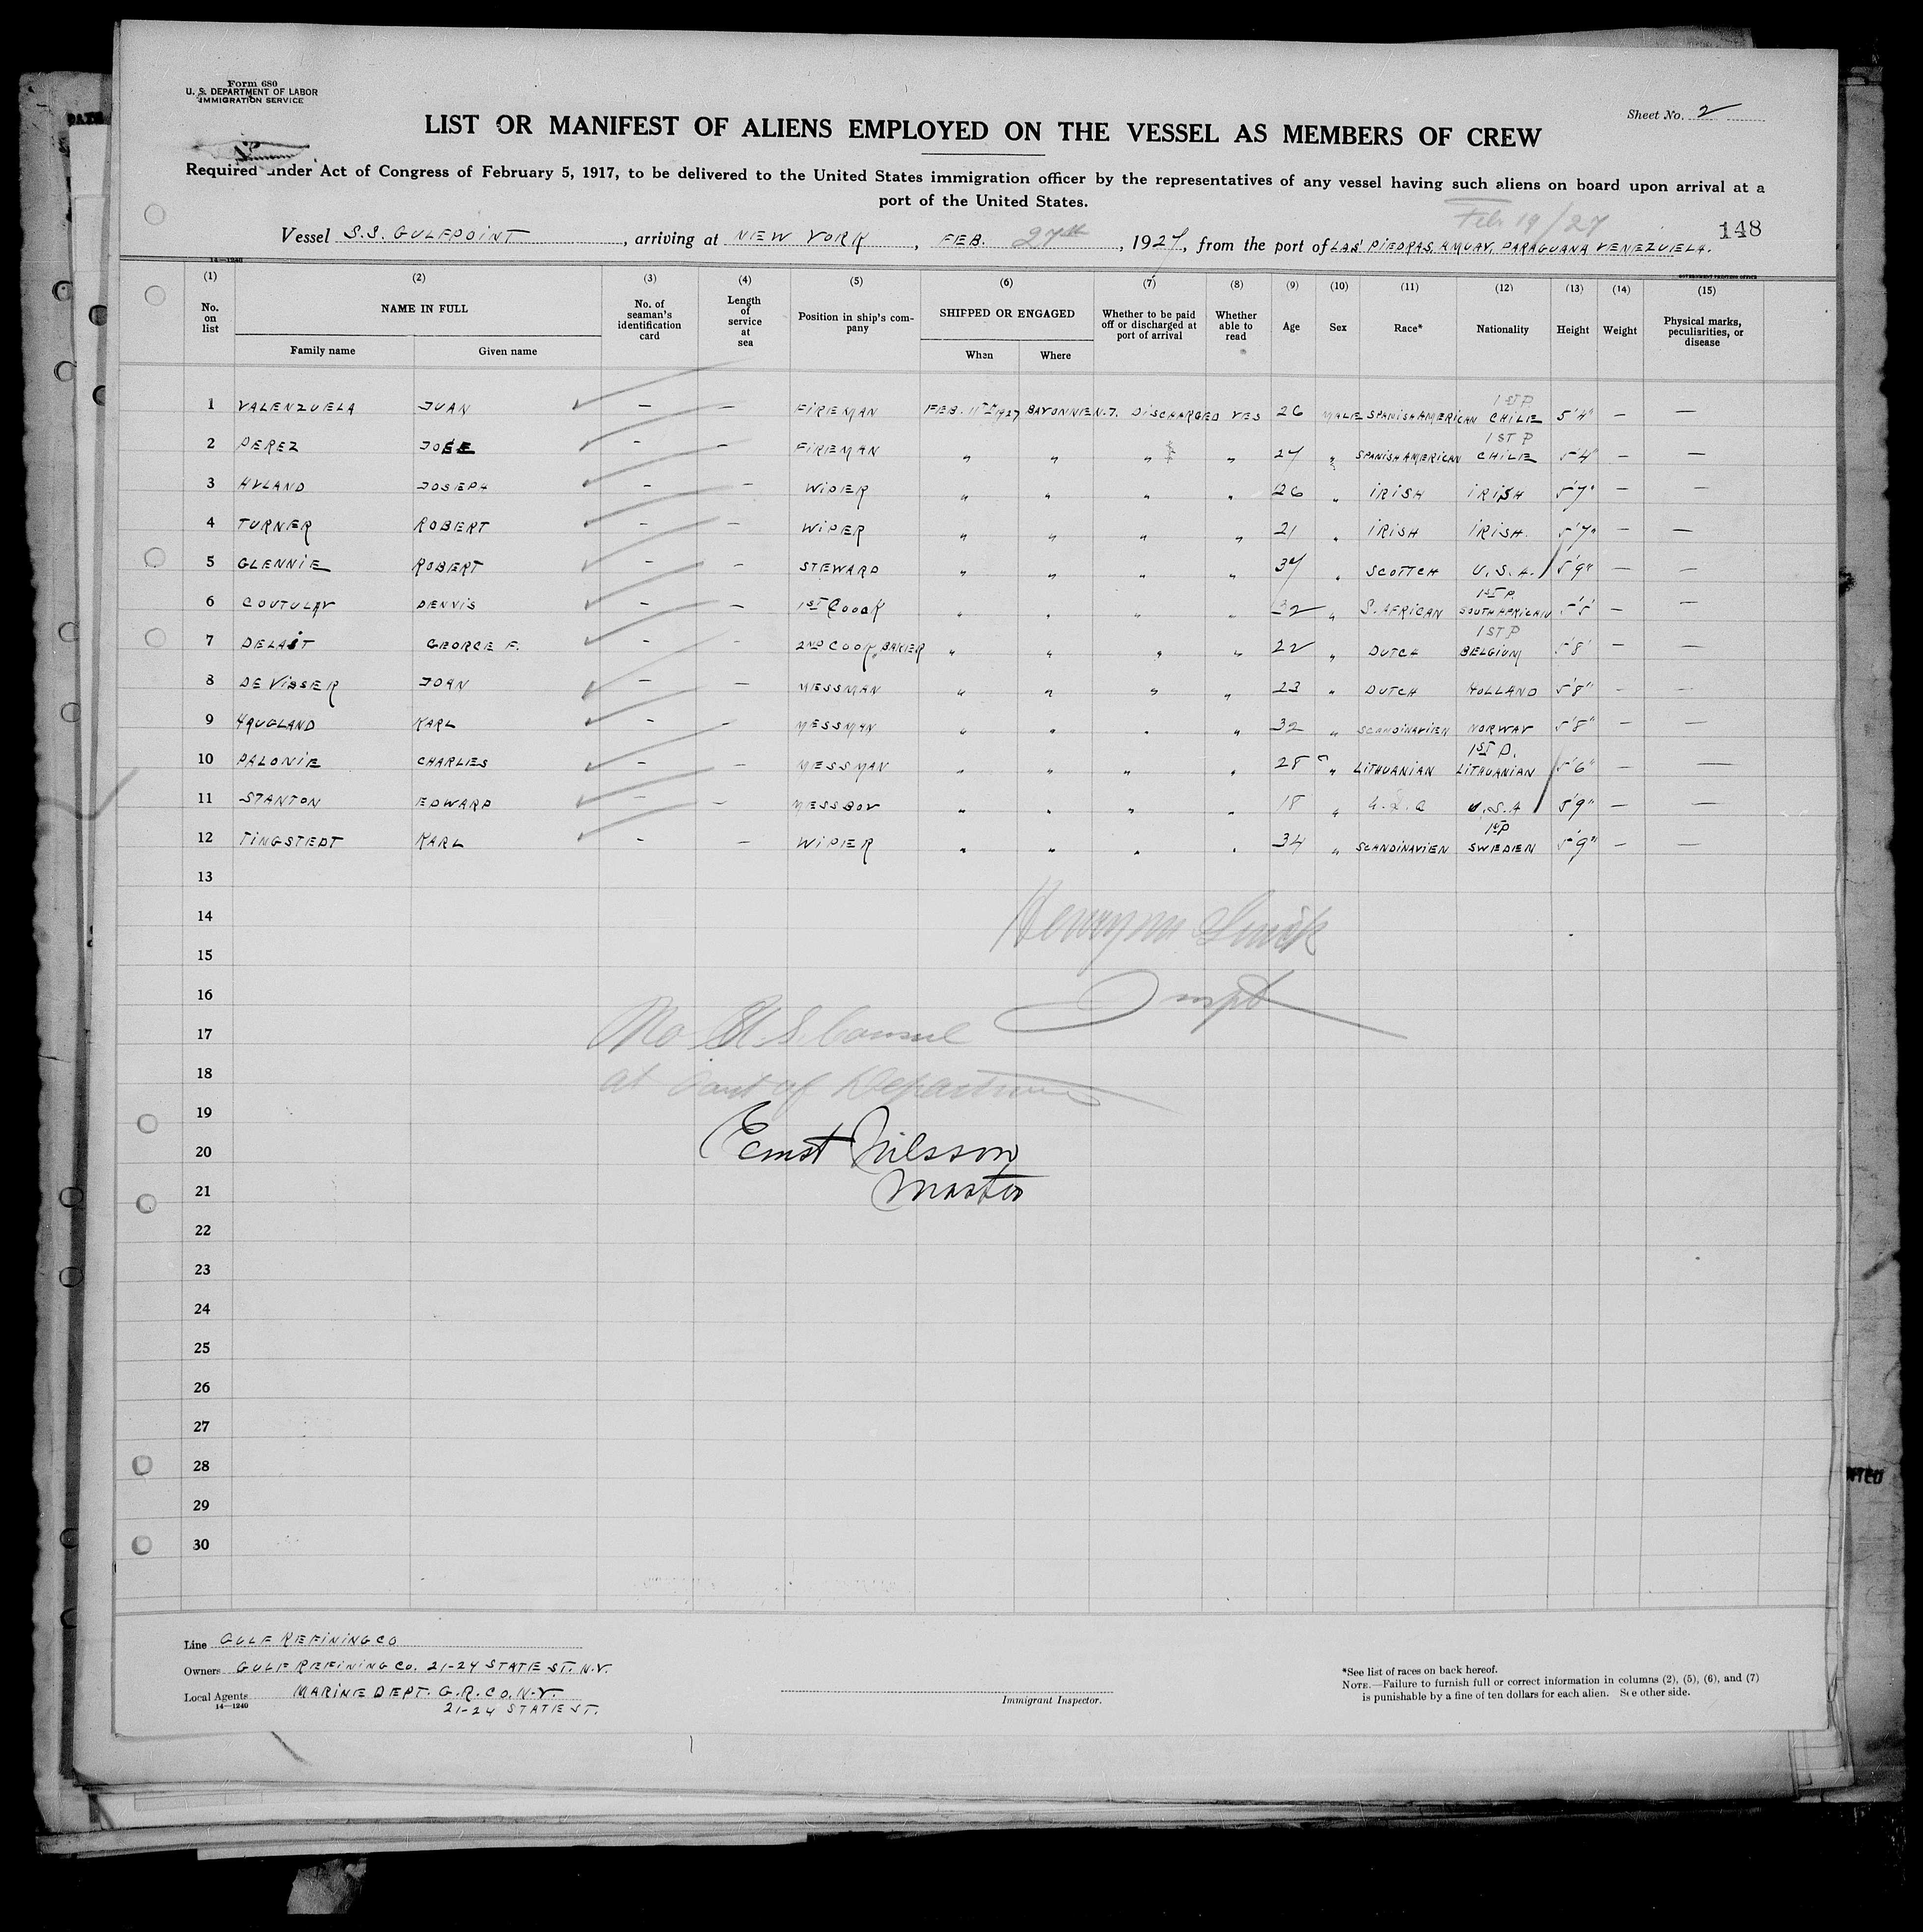 Form 680
U. S. DEPARTMENT OF LABOR
IMMIGRATION SERVICE
Sheet No. 2
LIST OR MANIFEST OF ALIENS EMPLOYED ON THE VESSEL AS MEMBERS OF CREW
Required under Act of Congress of February 5, 1917, to be delivered to the United States immigration officer by the representatives of any vessel having such aliens on board upon arrival at a
port of the United States.
Feb 19/27
148
Vessel S.S. GULFPOINT, arriving at NEW YORK, FEB. 27th, 1927, from the port of LAS PIEDRAS, AMUAY, PARAGUANA VENEZUELA.
14—1240
GOVERNMENT PRINTING OFFICE
(1) (2) (3) (4) (5) (6) (7) (8) (9) (10) (11) (12) (13) (14) (15)
No. on list NAME IN FULL Family name Given name No. of seaman's identification card Length of service at sea Position in ship's company SHIPPED OR ENGAGED When Where Whether to be paid off or discharged at port of arrival Whether able to read Age Sex Race* Nationality Height Weight Physical marks, peculiarities, or disease
1ST P
1 VALENZUELA JUAN — — FIREMAN FEB. 11TH 1927 BAYONNE N.J. DISCHARGED YES 26 MALE SPANISH AMERICAN CHILE 5'4" — —
1ST P
2 PEREZ JOSE — — FIREMAN " " " " 27 " SPANISH AMERICAN CHILE 5'4" — —
3 HYLAND JOSEPH — — WIPER " " " " 26 " IRISH IRISH 5'7" — —
4 TURNER ROBERT — — WIPER " " " " 21 " IRISH IRISH. 5'7" — —
5 GLENNIE ROBERT — — STEWARD " " " " 37 " SCOTTCH U.S.A. 5'9" — —
1ST P.
6 COUTULAY DENNIS — — 1ST COOOK " " " " 32 " S. AFRICAN SOUTH AFRICAN 5'5' — —
1ST P
7 DELAST GEORGE F. — — 2ND COOK, BAKER " " " " 22 " DUTCH BELGIUM 5'8' — —
8 DE VISSER JOHN — — MESSMAN " " " " 23 " DUTCH HOLLAND 5'8" — —
9 HAUGLAND KARL — — MESSMAN " " " " 32 " SCANDINAVIEN NORWAY 5'8" — —
1ST P.
10 PALONIE CHARLIES — — MESSMAN " " " " 28 " LITHUANIAN LITHUANIAN 5'6" — —
11 STANTON EDWARD — — MESSBOY " " " " 18 " U.S.A 5'9" — —
1ST P
12 TINGSTEDT KARL — — WIPER " " " " 34 " SCANDINAVIEN SWEDEN 5'9" — —
13
14
Henry M
15
16
Inspt
17
No U.S. Consul
18
at Port of Departure
19
20
Ernst Nilsson
21
Master
22
23
24
25
26
27
28
29
30
Line GULF REFINING CO
Owners GULF REFINING CO. 21-24 STATE ST. N.Y.
Local Agents MARINE DEPT. G.R. CO. N.Y.
14—1240
21-24 STATE ST.
Immigrant Inspector.
*See list of races on back hereof.
NOTE.—Failure to furnish full or correct information in columns (2), (5), (6), and (7)
is punishable by a fine of ten dollars for each alien. See other side.